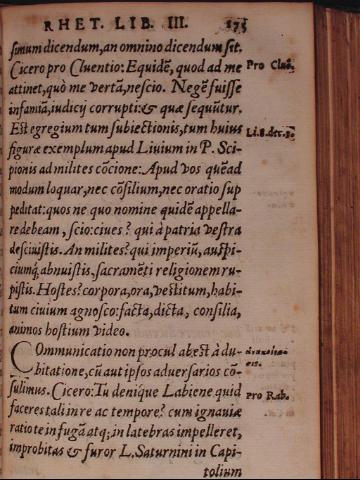 RHET. LIB. III. 175
simum dicendum, an omnino dicendum sit.
Cicero pro Cluentio: Equidẽ, quod ad me
Pro Cluẽ.
attinet, quò me vertã, nescio. Negẽ fuisse
infamiã, iudicij corrupti: & quæ sequũtur.
Est egregium tum subiectionis, tum huius
Li.8.dec.3.
figuræ exemplum apud Liuium in P. Sci-
pionis ad milites cõcione: Apud vos quẽad
modum loquar, nec cõsilium, nec oratio sup
peditat: quos ne quo nomine quidẽ appella-
re debeam, scio: ciues? qui à patria vestra
desciuistis. An milites? qui imperiũ, auspi-
ciumq́; abnuistis, sacramẽti religionem ru-
pistis. Hostes? corpora, ora, vestitum, habi-
tum ciuium agnosco: facta, dicta, consilia,
animos hostium video.
COmmunicatio non procul abest à du-
bitatione, cũ aut ipsos aduersarios cõ-
sulimus. Cicero: Tu denique Labiene quid
Pro Rab.
faceres tali in re ac tempore? cum ignauiæ
ratio te in fugã atq; in latebras impelleret,
improbitas & furor L. Saturnini in Capi-
tolium